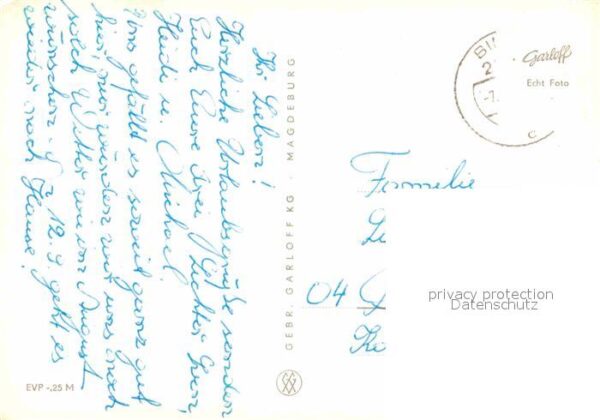 Ihr Lieben!
Herzliche Urlaubsgrüße senden
Euch Eure drei
Heidi u. Michael
Uns gefällt es soweit ganz gut
hier, nur würden wir uns noch
solch Wetter wie im August
wünschen. Am 12.9. geht es
wieder nach Hause.
EVP -,25 M
GEBR. GARLOFF KG · MAGDEBURG
Garloff
Echt Foto
Familie
04
privacy protection
Datenschutz